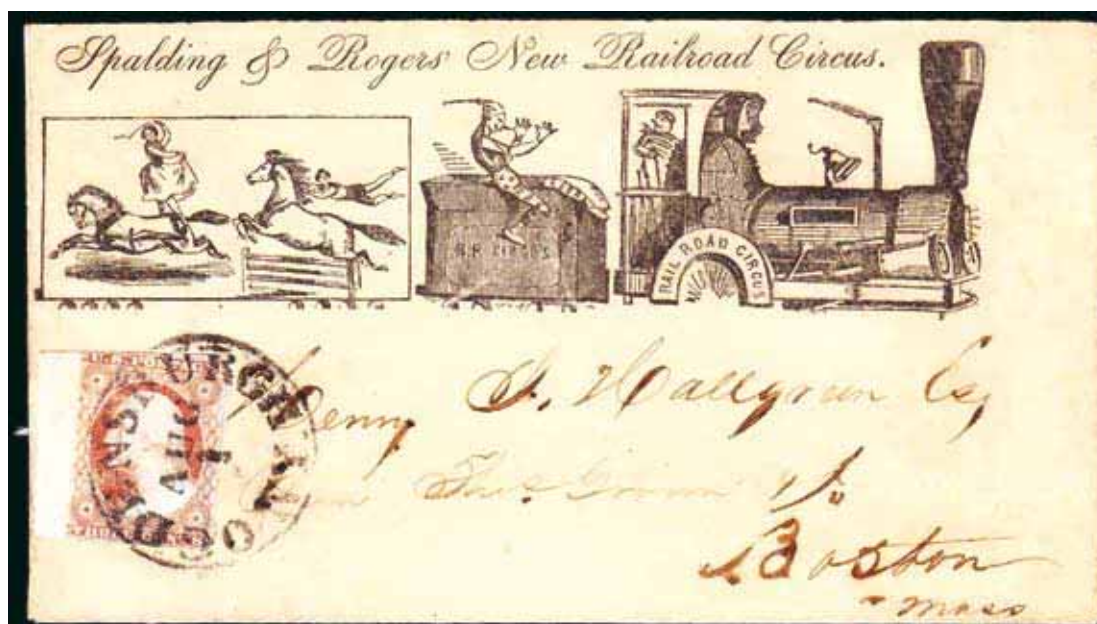 Spalding & Rogers' New Railroad Circus.
R.R. CIRCUS
RAIL ROAD CIRCUS
OGDENSBURGH N.Y.
AUG
1
Henry
Esq
Boston
Mass